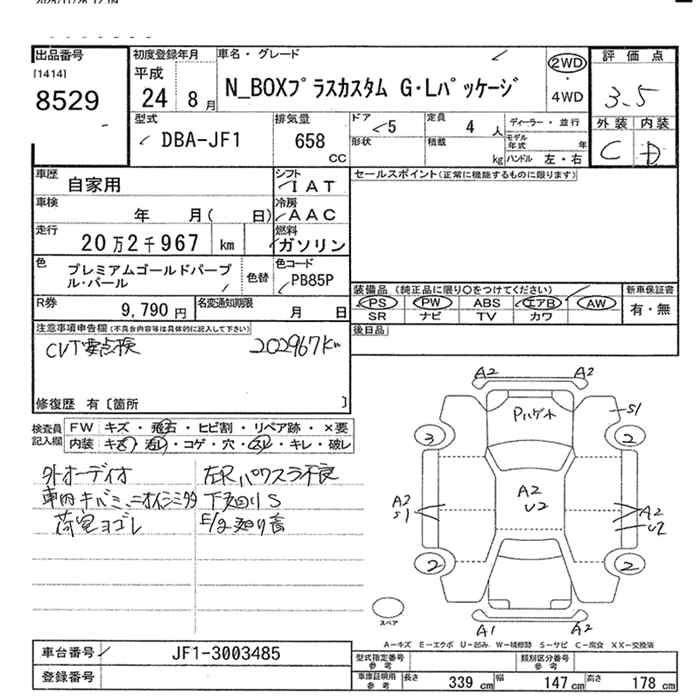 出品番号
[1414]
8529
初度登録年月
平成
24 8月
車名・グレード
N_BOXプラスカスタム G・Lパッケージ
2WD
・
4WD
評価点
3.5
外装 内装
C D
型式
DBA-JF1
排気量
658
CC
ドア
5
形状
定員
4人
積載
kg
ディーラー・並行
モデル年式 年
ハンドル 左・右
車歴
自家用
シフト
IAT
車検
年 月( 日)
冷房
AAC
走行
20万2千967 km
燃料
ガソリン
色
プレミアムゴールドパープル・パール
色替
色コード
PB85P
R券
9,790円
名変通知期限
月 日
セールスポイント(正常に機能するものに限ります)
装備品 (純正品に限り○をつけてください)
PS PW ABS エアB AW
SR ナビ TV カワ
新車保証書
有・無
後日品
注意事項申告欄(不具合内容等は具体的に記入して下さい)
CVT要点検 202967km
修復歴 有〔箇所 〕
検査員記入欄
FW キズ・飛石・ヒビ割・リペア跡・×要
内装 キズ・汚レ・コゲ・穴・スレ・キレ・破レ
外オーディオ
車内キバミ、ニオイ
荷室ヨゴレ
左Rパワスラ不良
下廻りS
E/g廻り音
A2 A2
Pハゲ
S1
3 2
A2
U2
A2
S1
A2
U2
2 2
A1 A2
スペア
A−キズ E−エクボ U−凹み W−補修跡 S−サビ C−腐食 XX−交換済
車台番号
JF1-3003485
登録番号
型式指定番号
参考
類別区分番号
参考
車庫証明用
参考
長さ 339 cm 幅 147 cm 高さ 178 cm